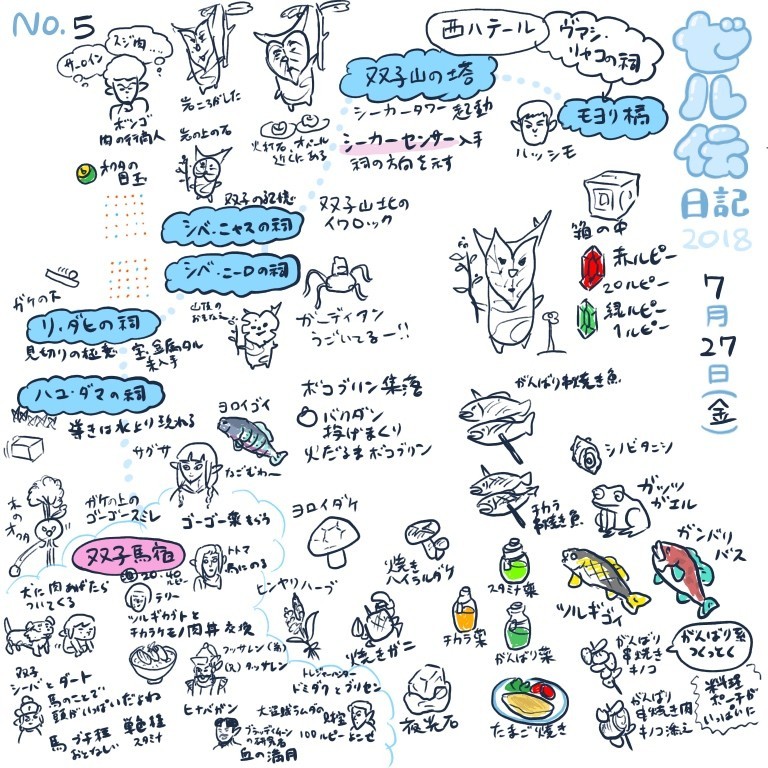 No.5
スジ肉…
サーロイン
ボンゴ
肉の行商人
オクタの
目玉
岩ころがした
岩の上の石
火打石、オパール
近くにある
双子山の塔
シーカータワー起動
シーカーセンサー入手
祠の方向を示す
西ハテール
ヴァシ・
リャコの祠
モヨリ橋
ハッシモ
ゼル伝
日記
2018
7月27日(金)
双子の記憶
シベ・ニャスの祠
シベ・ニーロの祠
双子山北の
イワロック
箱の中
赤ルピー
20ルピー
緑ルピー
1ルピー
ガケの下
リ・ダヒの祠
見切りの極意
宝、金属タル
未入手
山頂の
ガーディアン
うごいてるー!!
ハユ・ダマの祠
導きは水より現れる
ヨロイゴイ
なごむわ〜
ボコブリン集落
バクダン
投げまくり
火だるまボコブリン
がんばり串焼き魚
サグサ
木の
オクタ
ガケの上の
ゴーゴースミレ
ゴーゴー薬もらう
チカラ
串焼き魚
シノビタニシ
ガッツ
ガエル
ガンバリ
バス
双子馬宿
20・40
ルピー
トトマ
馬にのる
ヨロイダケ
焼き
ハイラルダケ
スタミナ薬
ツルギゴイ
犬に肉あげたら
ついてくる
テリー
ツルギカブトと
チカラケモノ肉丼 交換
ヒンヤリハーブ
焼きガニ
チカラ薬
がんばり薬
がんばり
串焼き
キノコ
がんばり系
つくっとく
双子
シーバとダート
馬のことで
頭がいっぱいだよね
馬 ブチ柄
おとなしい
単色柄
スタミナ
フッサレン(弟)
(兄)タッサレン
ヒナバガン
ブラッディムーン
の研究者
血の満月
トレジャーハンター
ドミダクとプリセン
大盗賊ラムダの
財宝
100ルピーよこせ
夜光石
たまご焼き
がんばり
串焼き肉
キノコ添え
料理
ポーチが
いっぱいだ